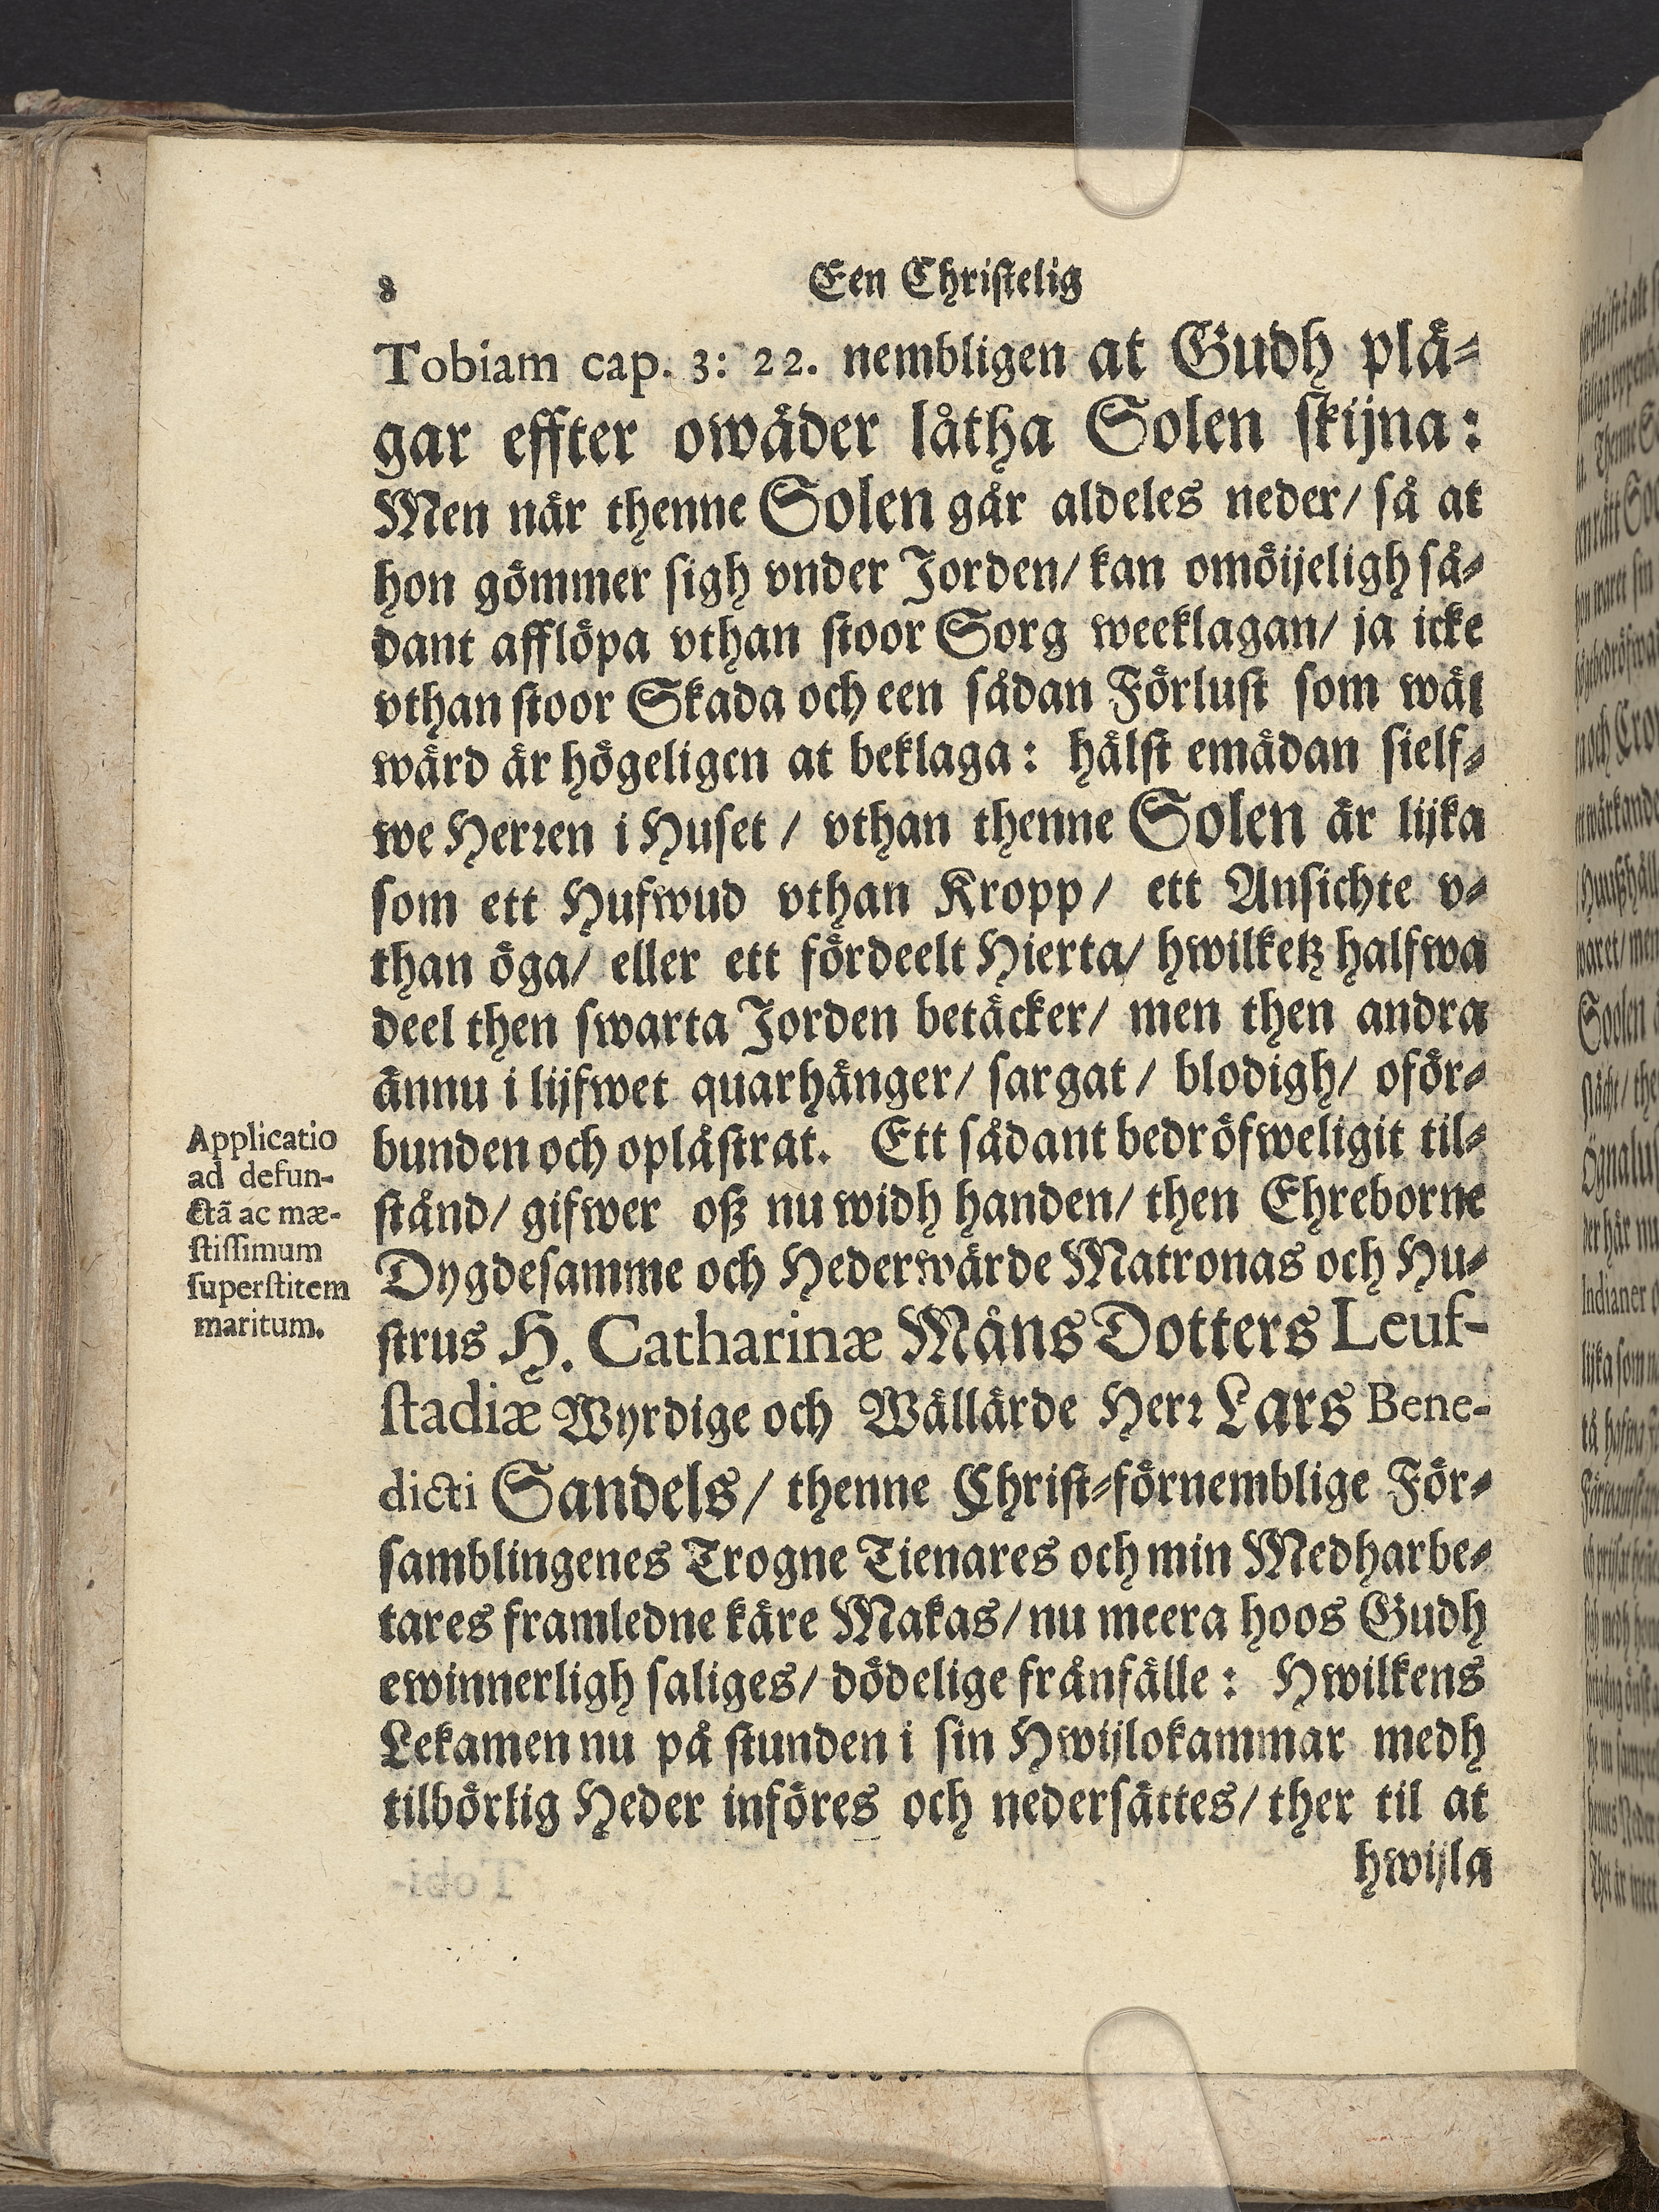 8 Een Christelig
Tobiam cap. 3: 22. nembligen at Gudh plä-
gar effter owäder låtha Solen skijna:
Men når thenne Solen går aldeles neder/ så at
hon gömmer sigh vnder Jorden/ kan omöijeligh så-
dant afflöpa vthan stoor Sorg weeklagan/ ja icke
vthan stoor Skada och een sådan Förlust som wäl
wärd är högeligen at beklaga: hälst emädan sielf-
we Herren i Huset / vthan thenne Solen är lijka
som ett Hufwud vthan Kropp/ ett Ansichte v-
than öga/ eller ett fördeelt Hierta/ hwilketz halfwa
deel then swarta Jorden betäcker/ men then andra
ännu i lijfwet quarhänger/ sargat / blodigh/ oför-
bunden och oplåstrat. Ett sådant bedröfweligit til-
stånd/ gifwer oß nu widh handen/ then Ehreborne
Dygdesamme och Hederwärde Matronas och Hu-
strus H. Catharinæ Måns Dotters Leuf-
stadiæ Wyrdige och Wällärde Herr Lars Bene-
dicti Sandels/ thenne Christ-förnemblige För-
samblingenes Trogne Tienares och min Medharbe-
tares framledne käre Makas/ nu meera hoos Gudh
ewinnerligh saliges/ dödelige frånfälle: Hwilkens
Lekamen nu på stunden i sin Hwijlokammar medh
tilbörlig Heder införes och nedersättes/ ther til at
hwijla
Applicatio
ad defun-
ctã ac mæ-
stissimum
superstitem
maritum.